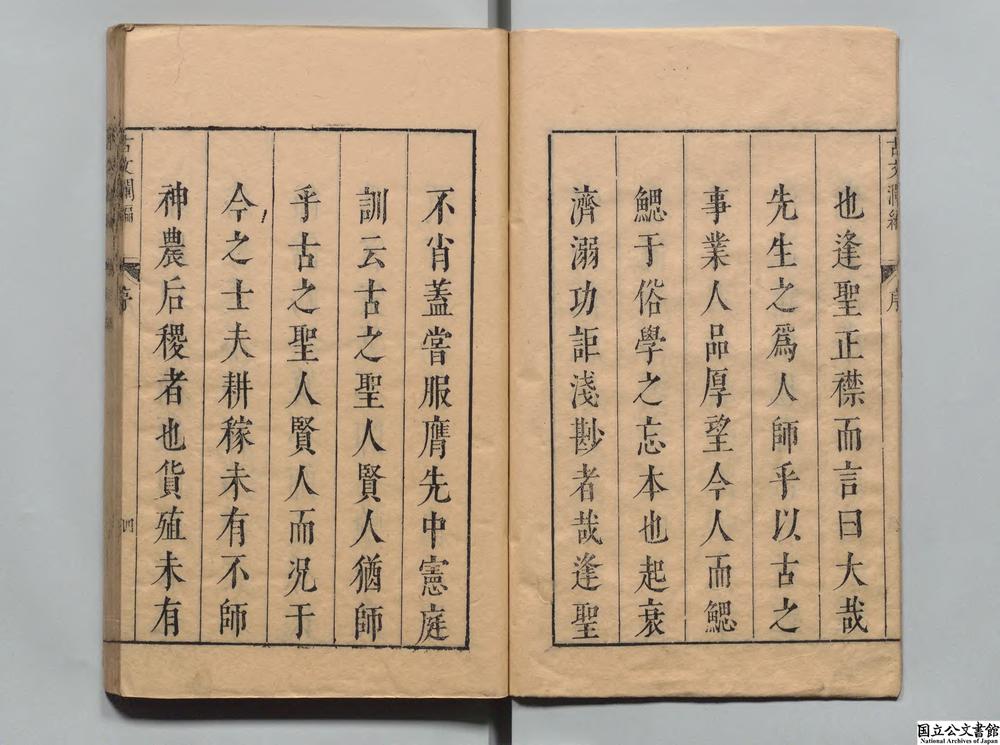 也逢聖正襟而言曰大哉
先生之爲人師乎以古之
事業人品厚望今人而鰓
鰓于俗學之忘本也起衰
濟溺功詎淺尠者哉逢聖
不肖蓋嘗服膺先中憲庭
訓云古之聖人賢人猶師
乎古之聖人賢人而況于
今之士夫耕稼未有不師
神農后稷者也貨殖未有
古文瀾編
序
四
国立公文書館
National Archives of Japan